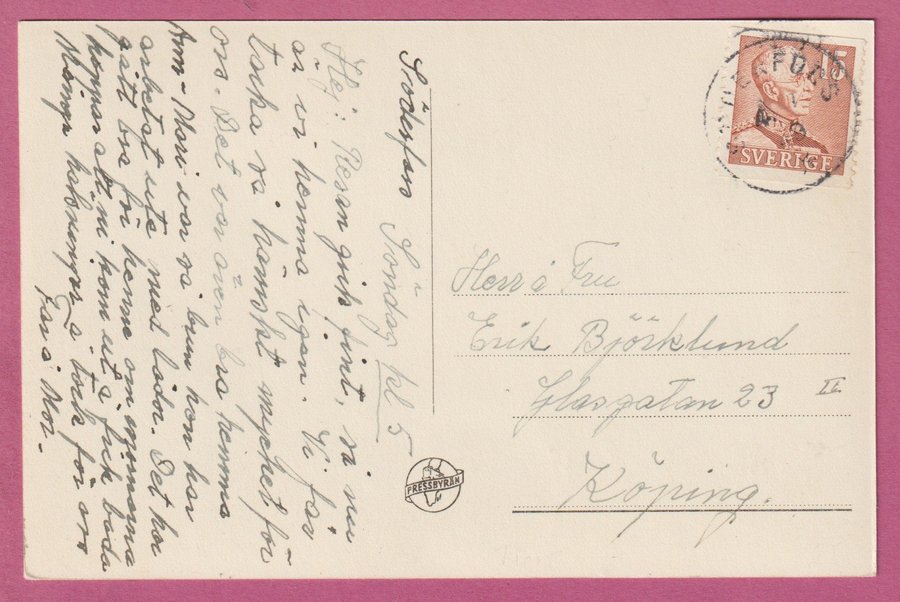 Söderfors Söndag kl 5
Hej! Resan gick fint, så nu
är vi hemma igen. Vi får
tacka så hämskt mycket för
oss. Det var även bra hemma
Ann-Mari var så brun hon har
arbetat ute med lador. Det har
gått bra för henne om mornarna
hoppas att ni kom ut å fick bada
Många hälsningar å tack för oss
Far å Mor.
15
SVERIGE
PRESSBYRÅN
Herr å Fru
Erik Björklund
Glasgatan 23 II
Köping.